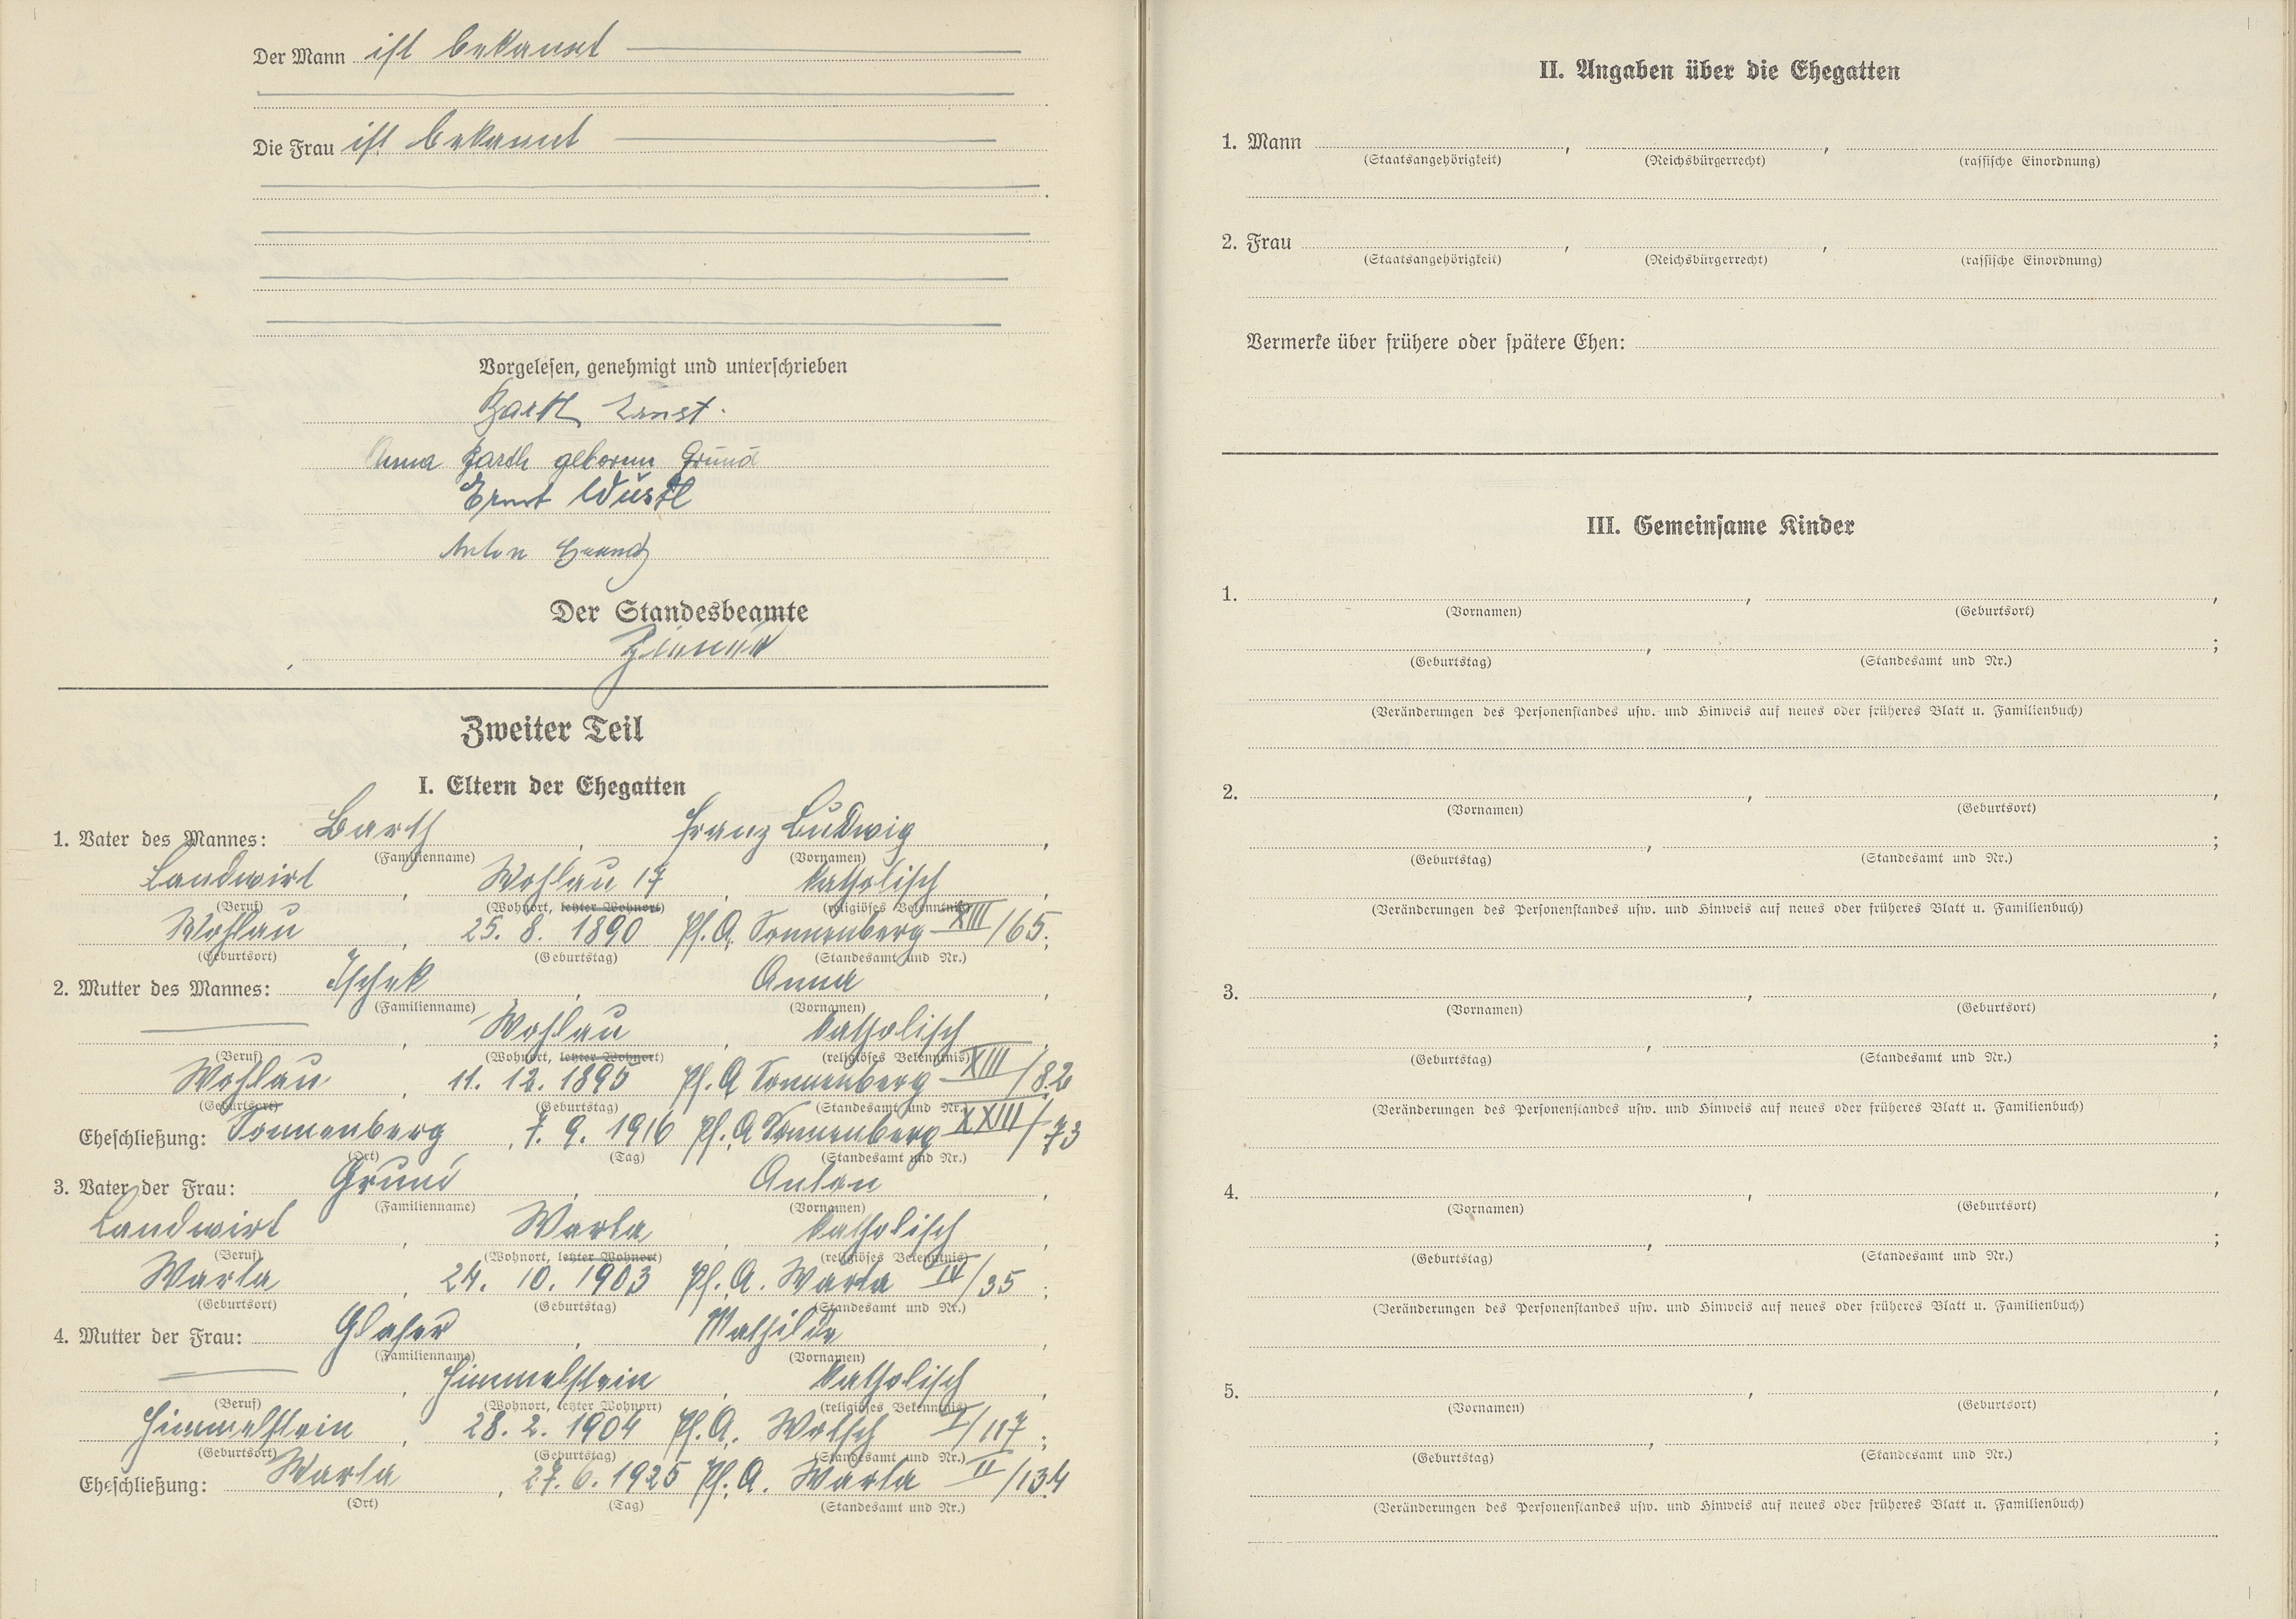 Der Mann ist bekannt
Die Frau ist bekannt
Vorgelesen, genehmigt und unterschrieben
Barth Ernst.
Anna Barth geborene Grund
Ernst Wüstl
Anton
Der Standesbeamte
Zweiter Teil
I. Eltern der Ehegatten
1. Vater des Mannes: Barth, Franz Ludwig,
(Familienname) (Vornamen)
Landwirt, Wohlau 17, katholisch,
(Beruf) (Wohnort, letzter Wohnort) (religiöses Bekenntnis)
Wohlau, 25. 8. 1890 Pf. A. Sonnenberg XIII/65;
(Geburtsort) (Geburtstag) (Standesamt und Nr.)
2. Mutter des Mannes: Ischek, Anna,
(Familienname) (Vornamen)
Wohlau, katholisch,
(Beruf) (Wohnort, letzter Wohnort) (religiöses Bekenntnis)
Wohlau, 11. 12. 1895 Pf. A Sonnenberg XIII/82
(Geburtsort) (Geburtstag) (Standesamt und Nr.)
Eheschließung: Sonnenberg, 7. 9. 1916 Pf. A Sonnenberg XXIII/73
(Ort) (Tag) (Standesamt und Nr.)
3. Vater der Frau: Grund, Anton,
(Familienname) (Vornamen)
Landwirt, Warta, katholisch,
(Beruf) (Wohnort, letzter Wohnort) (religiöses Bekenntnis)
Warta, 24. 10. 1903 Pf. A. Warta IV/35;
(Geburtsort) (Geburtstag) (Standesamt und Nr.)
4. Mutter der Frau: Glaser, Mathilde,
(Familienname) (Vornamen)
Himmelstein, katholisch,
(Beruf) (Wohnort, letzter Wohnort) (religiöses Bekenntnis)
Himmelstein, 28. 2. 1904 Pf. A. Wotsch I/117;
(Geburtsort) (Geburtstag) (Standesamt und Nr.)
Eheschließung: Warta, 27. 6. 1925 Pf. A. Warta II/134
(Ort) (Tag) (Standesamt und Nr.)
II. Angaben über die Ehegatten
1. Mann , ,
(Staatsangehörigkeit) (Reichsbürgerrecht) (rassische Einordnung)
2. Frau , ,
(Staatsangehörigkeit) (Reichsbürgerrecht) (rassische Einordnung)
Vermerke über frühere oder spätere Ehen:
III. Gemeinsame Kinder
1. , ,
(Vornamen) (Geburtsort)
, ;
(Geburtstag) (Standesamt und Nr.)
(Veränderungen des Personenstandes usw. und Hinweis auf neues oder früheres Blatt u. Familienbuch)
2. , ,
(Vornamen) (Geburtsort)
, ;
(Geburtstag) (Standesamt und Nr.)
(Veränderungen des Personenstandes usw. und Hinweis auf neues oder früheres Blatt u. Familienbuch)
3. , ,
(Vornamen) (Geburtsort)
, ;
(Geburtstag) (Standesamt und Nr.)
(Veränderungen des Personenstandes usw. und Hinweis auf neues oder früheres Blatt u. Familienbuch)
4. , ,
(Vornamen) (Geburtsort)
, ;
(Geburtstag) (Standesamt und Nr.)
(Veränderungen des Personenstandes usw. und Hinweis auf neues oder früheres Blatt u. Familienbuch)
5. , ,
(Vornamen) (Geburtsort)
, ;
(Geburtstag) (Standesamt und Nr.)
(Veränderungen des Personenstandes usw. und Hinweis auf neues oder früheres Blatt u. Familienbuch)